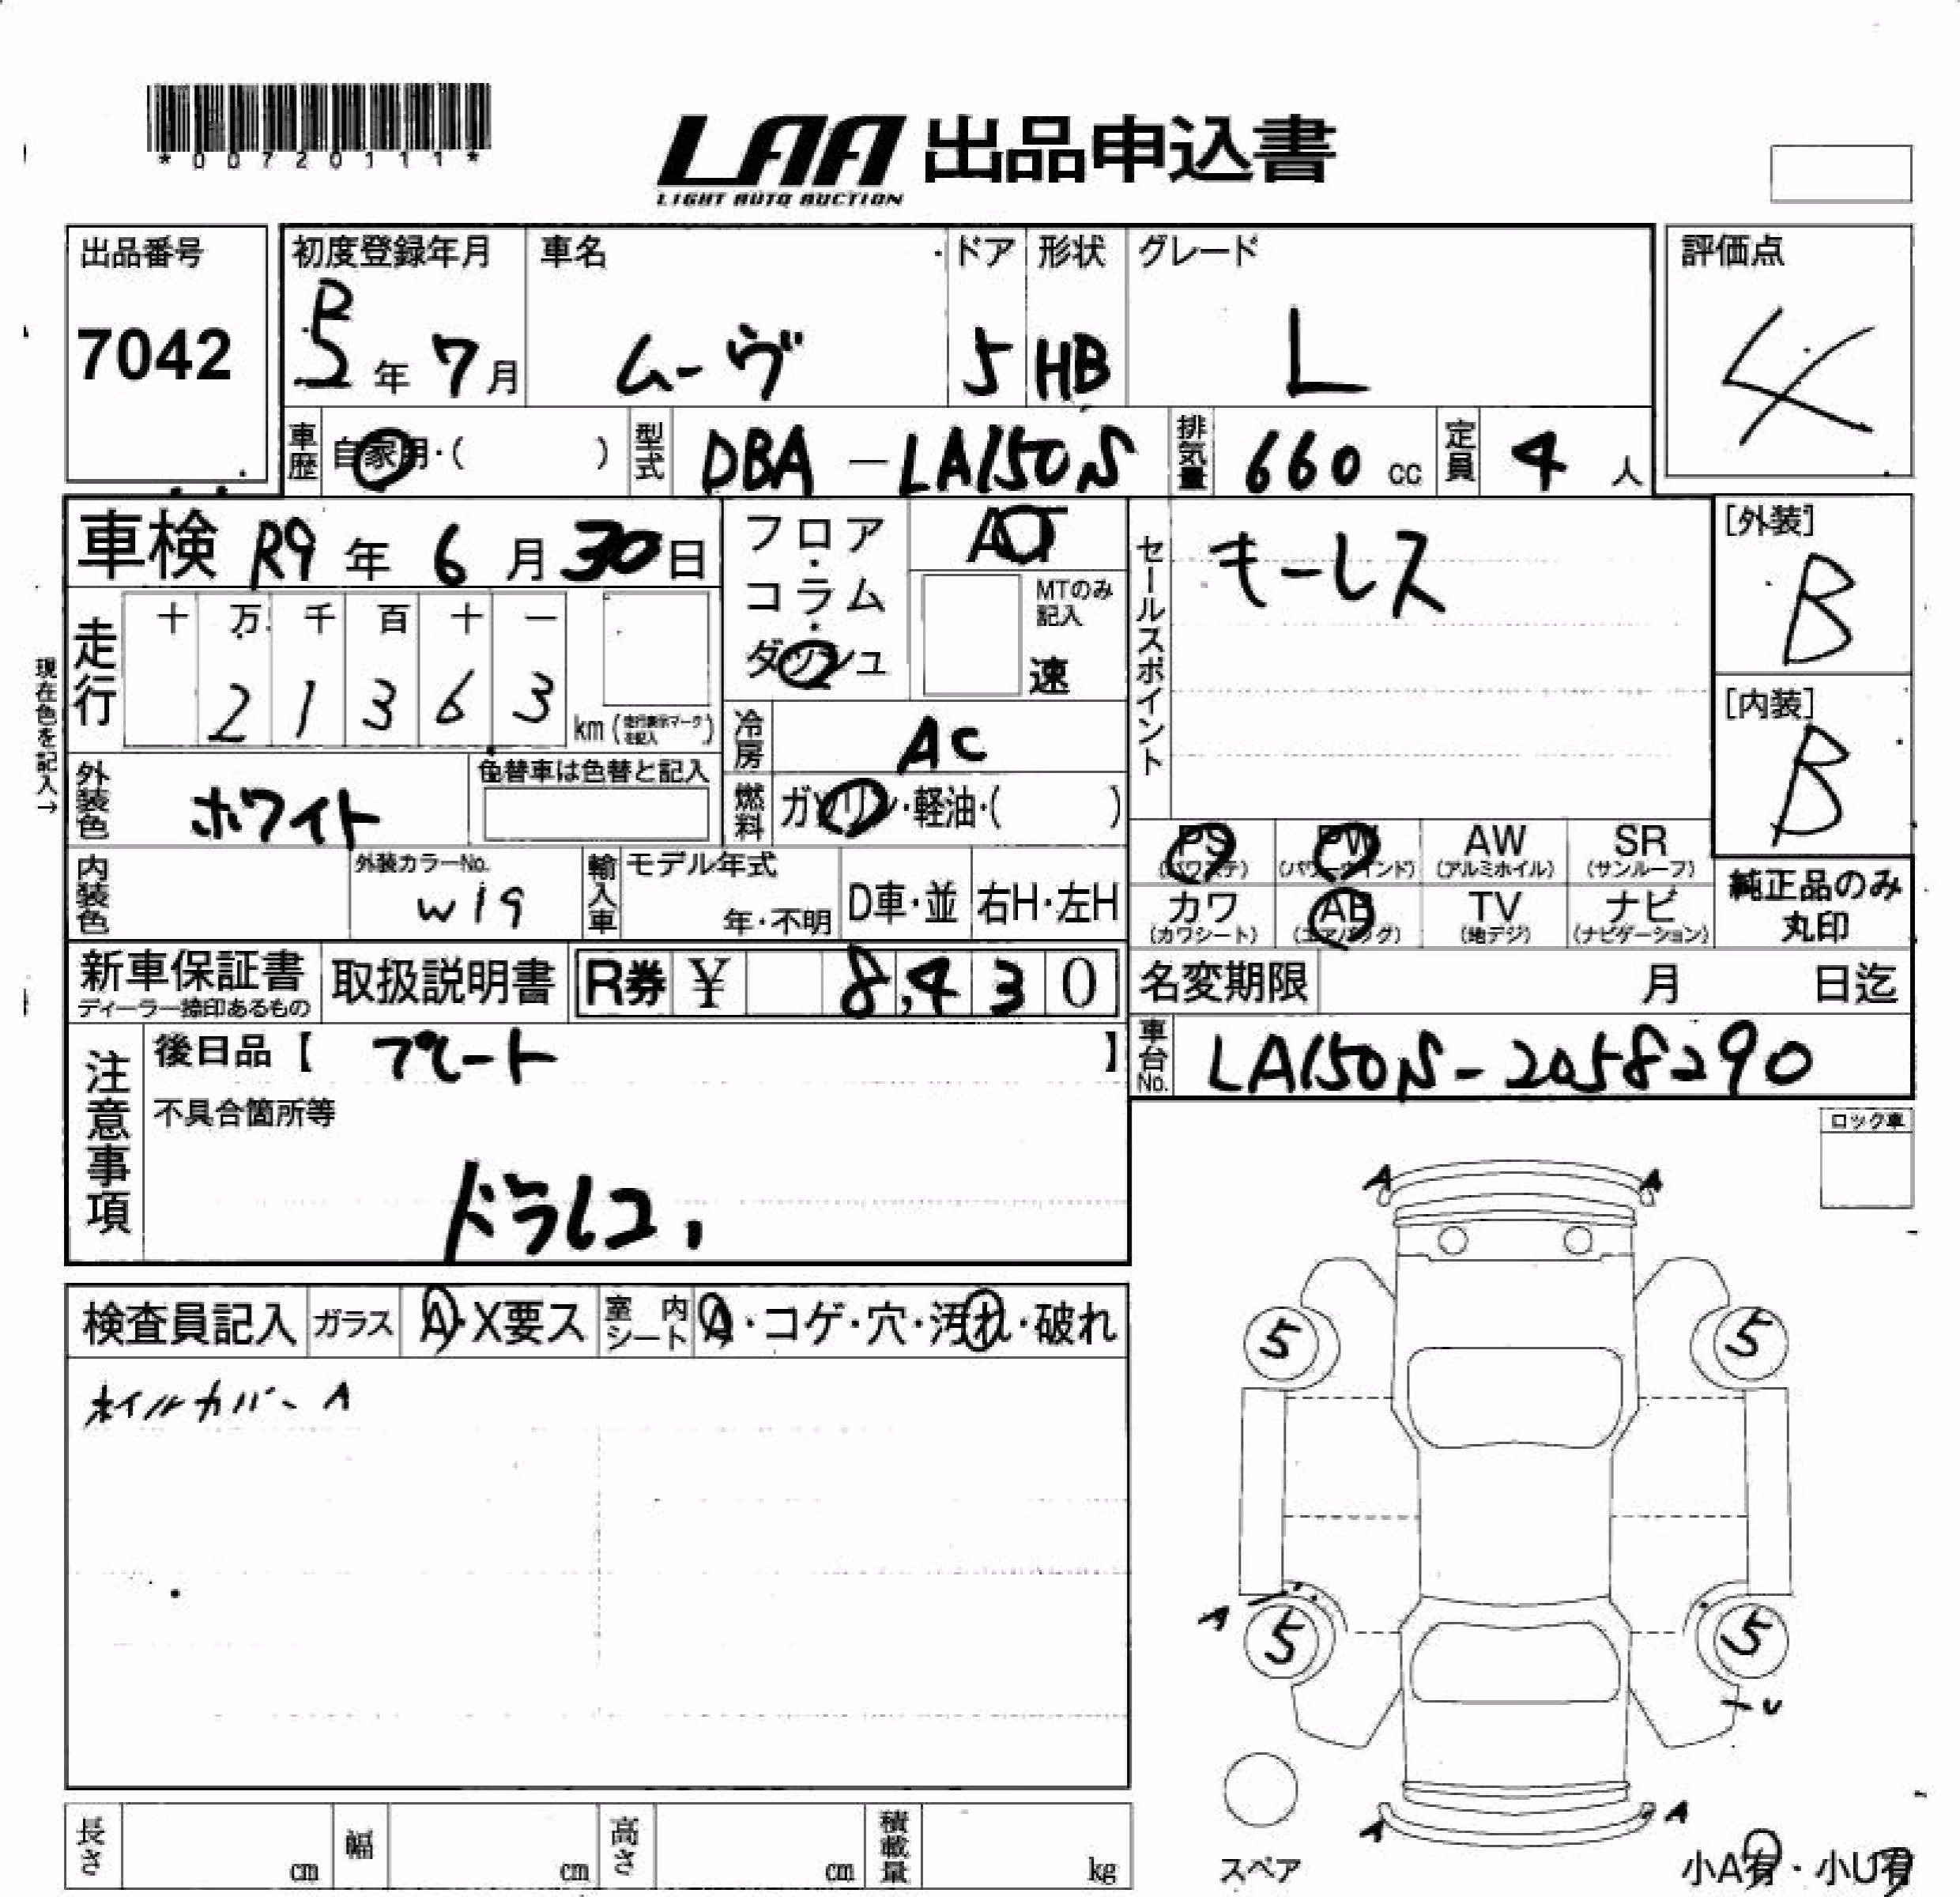 *00720111*
LAA 出品申込書
LIGHT AUTO AUCTION
出品番号
7042
初度登録年月
R5年7月
車名
ムーヴ
ドア
5
形状
HB
グレード
L
評価点
4
車歴
自家用・( )
型式
DBA-LA150S
排気量
660cc
定員
4人
車検 R9年6月30日
フロア・コラム・ダッシュ
AT
MTのみ記入
速
セールスポイント
キーレス
[外装]
B
[内装]
B
現在色を記入→
走行
十 万 千 百 十 一
2 1 3 6 3
km(走行表示マークを記入)
冷房
AC
外装色
ホワイト
色替車は色替と記入
燃料
ガソリン・軽油・( )
PS
(パワステ)
PW
(パワーウインド)
AW
(アルミホイル)
SR
(サンルーフ)
カワ
(カワシート)
AB
(エアバッグ)
TV
(地デジ)
ナビ
(ナビゲーション)
純正品のみ
丸印
内装色
外装カラーNo.
W19
輸入車
モデル年式
年・不明
D車・並
右H・左H
新車保証書
ディーラー捺印あるもの
取扱説明書
R券 ¥ 8,430
名変期限 月 日迄
車台No.
LA150S-2058290
注意事項
後日品【 プレート 】
不具合箇所等
ドラレコ,
ロック車
検査員記入
ガラス
A・X要ス
室内シート
A・コゲ・穴・汚れ・破れ
ホイルカバーA
A A
5 5
A 5 5
U
A A
スペア
小A有・小U有
長さ cm
幅 cm
高さ cm
積載量 kg